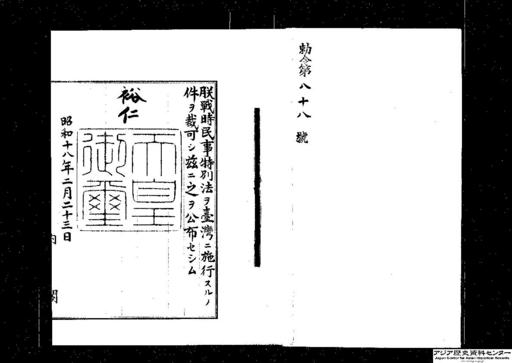 勅令第八十八號
朕戰時民事特別法ヲ臺灣ニ施行スルノ
件ヲ裁可シ茲ニ之ヲ公布セシム
裕仁
天皇
御璽
昭和十八年二月二十三日
内閣
アジア歴史資料センター
Japan Center for Asian Historical Records